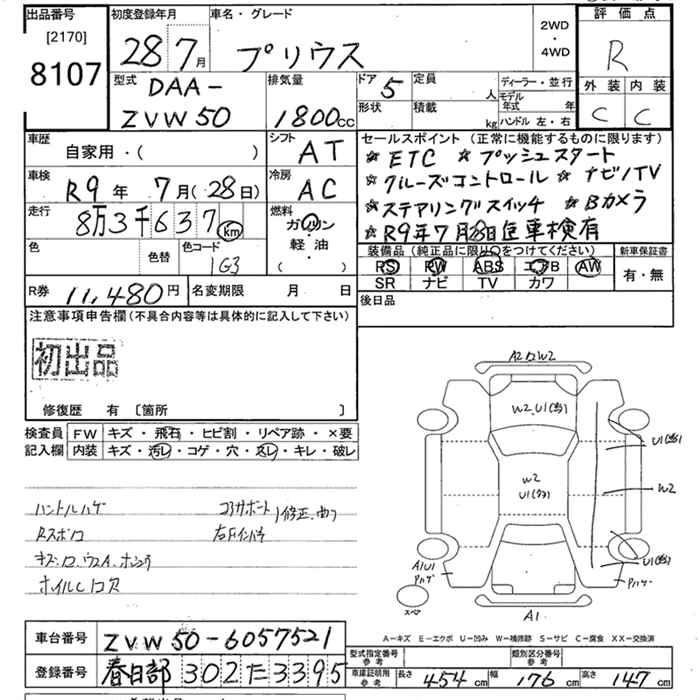 出品番号 [2170] 8107
初度登録年月 28年7月
車名・グレード プリウス
2WD・4WD
評価点 R
外装 C 内装 C
型式 DAA-ZVW50
排気量 1800cc
ドア 5 形状
定員 人 積載 kg
ディーラー・並行
モデル年式 年
ハンドル 左・右
車歴 自家用・( )
シフト AT
車検 R9年 7月(28日)
冷房 AC
走行 8万3千637km
燃料 ガソリン・軽・油 ( )
色 色替 色コード 1G3
R券 11,480円
名変期限 月 日
セールスポイント (正常に機能するものに限ります)
☆ ETC ☆ プッシュスタート
☆クルーズコントロール ☆ ナビ/TV
☆ステアリングスイッチ ☆Bカメラ
☆R9年7月28日迄車検有
装備品 (純正品に限り○をつけてください)
PS PW ABS エアB AW
SR ナビ TV カワ
新車保証書 有・無
後日品
注意事項申告欄(不具合内容等は具体的に記入して下さい)
初出品
修復歴 有 〔箇所 〕
検査員記入欄
FW キズ・飛石・ヒビ割・リペア跡・×要
内装 キズ・汚レ・コゲ・穴・スレ・キレ・破レ
ハンドルハゲ
コアサポート 修正、曲り
Rスポ
ホイル
A2 W2
W2 U1
U1
W2
W2
U1
U1
A1U1
Pハゲ
Pハゲ
スペア
A1
A-キズ E-エクボ U-凹み W-補修跡 S-サビ C-腐食 XX-交換済
車台番号 ZVW50-6057521
登録番号 春日部 302 た 3395
型式指定番号 参考
類別区分番号 参考
車庫証明用 参考 長さ 454cm 幅 176cm 高さ 147cm